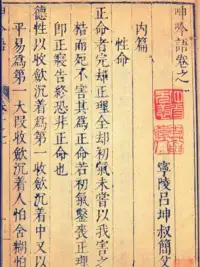 呻吟語卷之一
寧陵呂坤叔簡父
內篇
性命
正命者完却正理全却初氣未嘗以我害之
梏而死不害其為正命若初氣鑿喪正理
即正寢告終恐非正命也
德性以收歛沉着為第一收歛沉着中又以
平易為第一大段收歛沉着人怕含糊怕